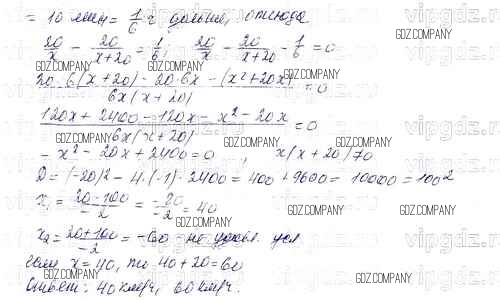 = 10 мин = 1/6 ч дольше, отсюда
20/x - 20/(x+20) = 1/6; 20/x - 20/(x+20) - 1/6 = 0
(20·6(x+20) - 20·6x - (x²+20x))/(6x(x+20)) = 0
(120x + 2400 - 120x - x² - 20x)/(6x(x+20)) = 0
- x² - 20x + 2400 = 0, x(x+20)≠0
D = (-20)² - 4·(-1)·2400 = 400 + 9600 = 10000 = 100²
x₁ = (20-100)/-2 = -80/-2 = 40
x₂ = (20+100)/-2 = -60 не удовл. усл
если x = 40, то 40 + 20 = 60
Ответ: 40 км/ч, 60 км/ч.
GDZ.COMPANY
GDZ.COMPANY
GDZ.COMPANY
GDZ.COMPANY
GDZ.COMPANY
GDZ.COMPANY
GDZ.COMPANY
GDZ.COMPANY
GDZ.COMPANY
GDZ.COMPANY
GDZ.COMPANY
GDZ.COMPANY
vipgdz.ru